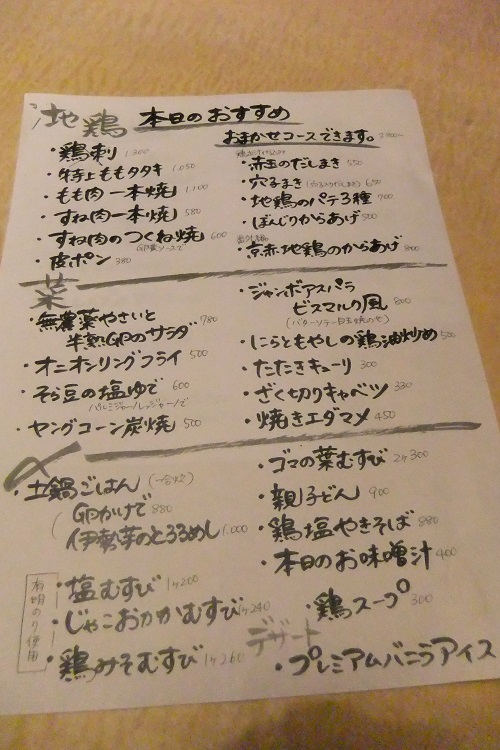 地鶏 本日のおすすめ
おまかせコースできます。
・鶏刺 1.200
・特上ももタタキ 1.050
・もも肉一本焼 1.100
・すね肉一本焼 580
・すね肉のつくね焼 600
・皮ポン 380
・赤玉のだしまき 550
・穴子まき 650
・地鶏のパテ3種 900
・ぼんじりからあげ 500
・京赤地鶏のからあげ 800
菜
・無農薬やさいと
半熟GPのサラダ 780
・オニオンリングフライ 500
・そら豆の塩ゆで 600
パルミジャーノレッジャーノで
・ヤングコーン炭焼 500
・ジャンボアスパラ
ビスマルク風 800
(バターソテー目玉焼のせ)
・にらともやしの鶏油炒め 500
・たたきキューリ 300
・ざく切りキャベツ 330
・焼きエダマメ 450
〆
・土鍋ごはん (一合炊)
GPかけで 880
伊勢芋のとろろめし 1.000
有明のり使用
・塩むすび 1ヶ200
・じゃこおかかむすび 1ヶ240
・鶏みそむすび 1ヶ260
・ゴマの葉むすび 2ヶ300
・親子どん 900
・鶏塩やきそば 880
・本日のお味噌汁 400
・鶏スープ 300
デザート
・プレミアムバニラアイス